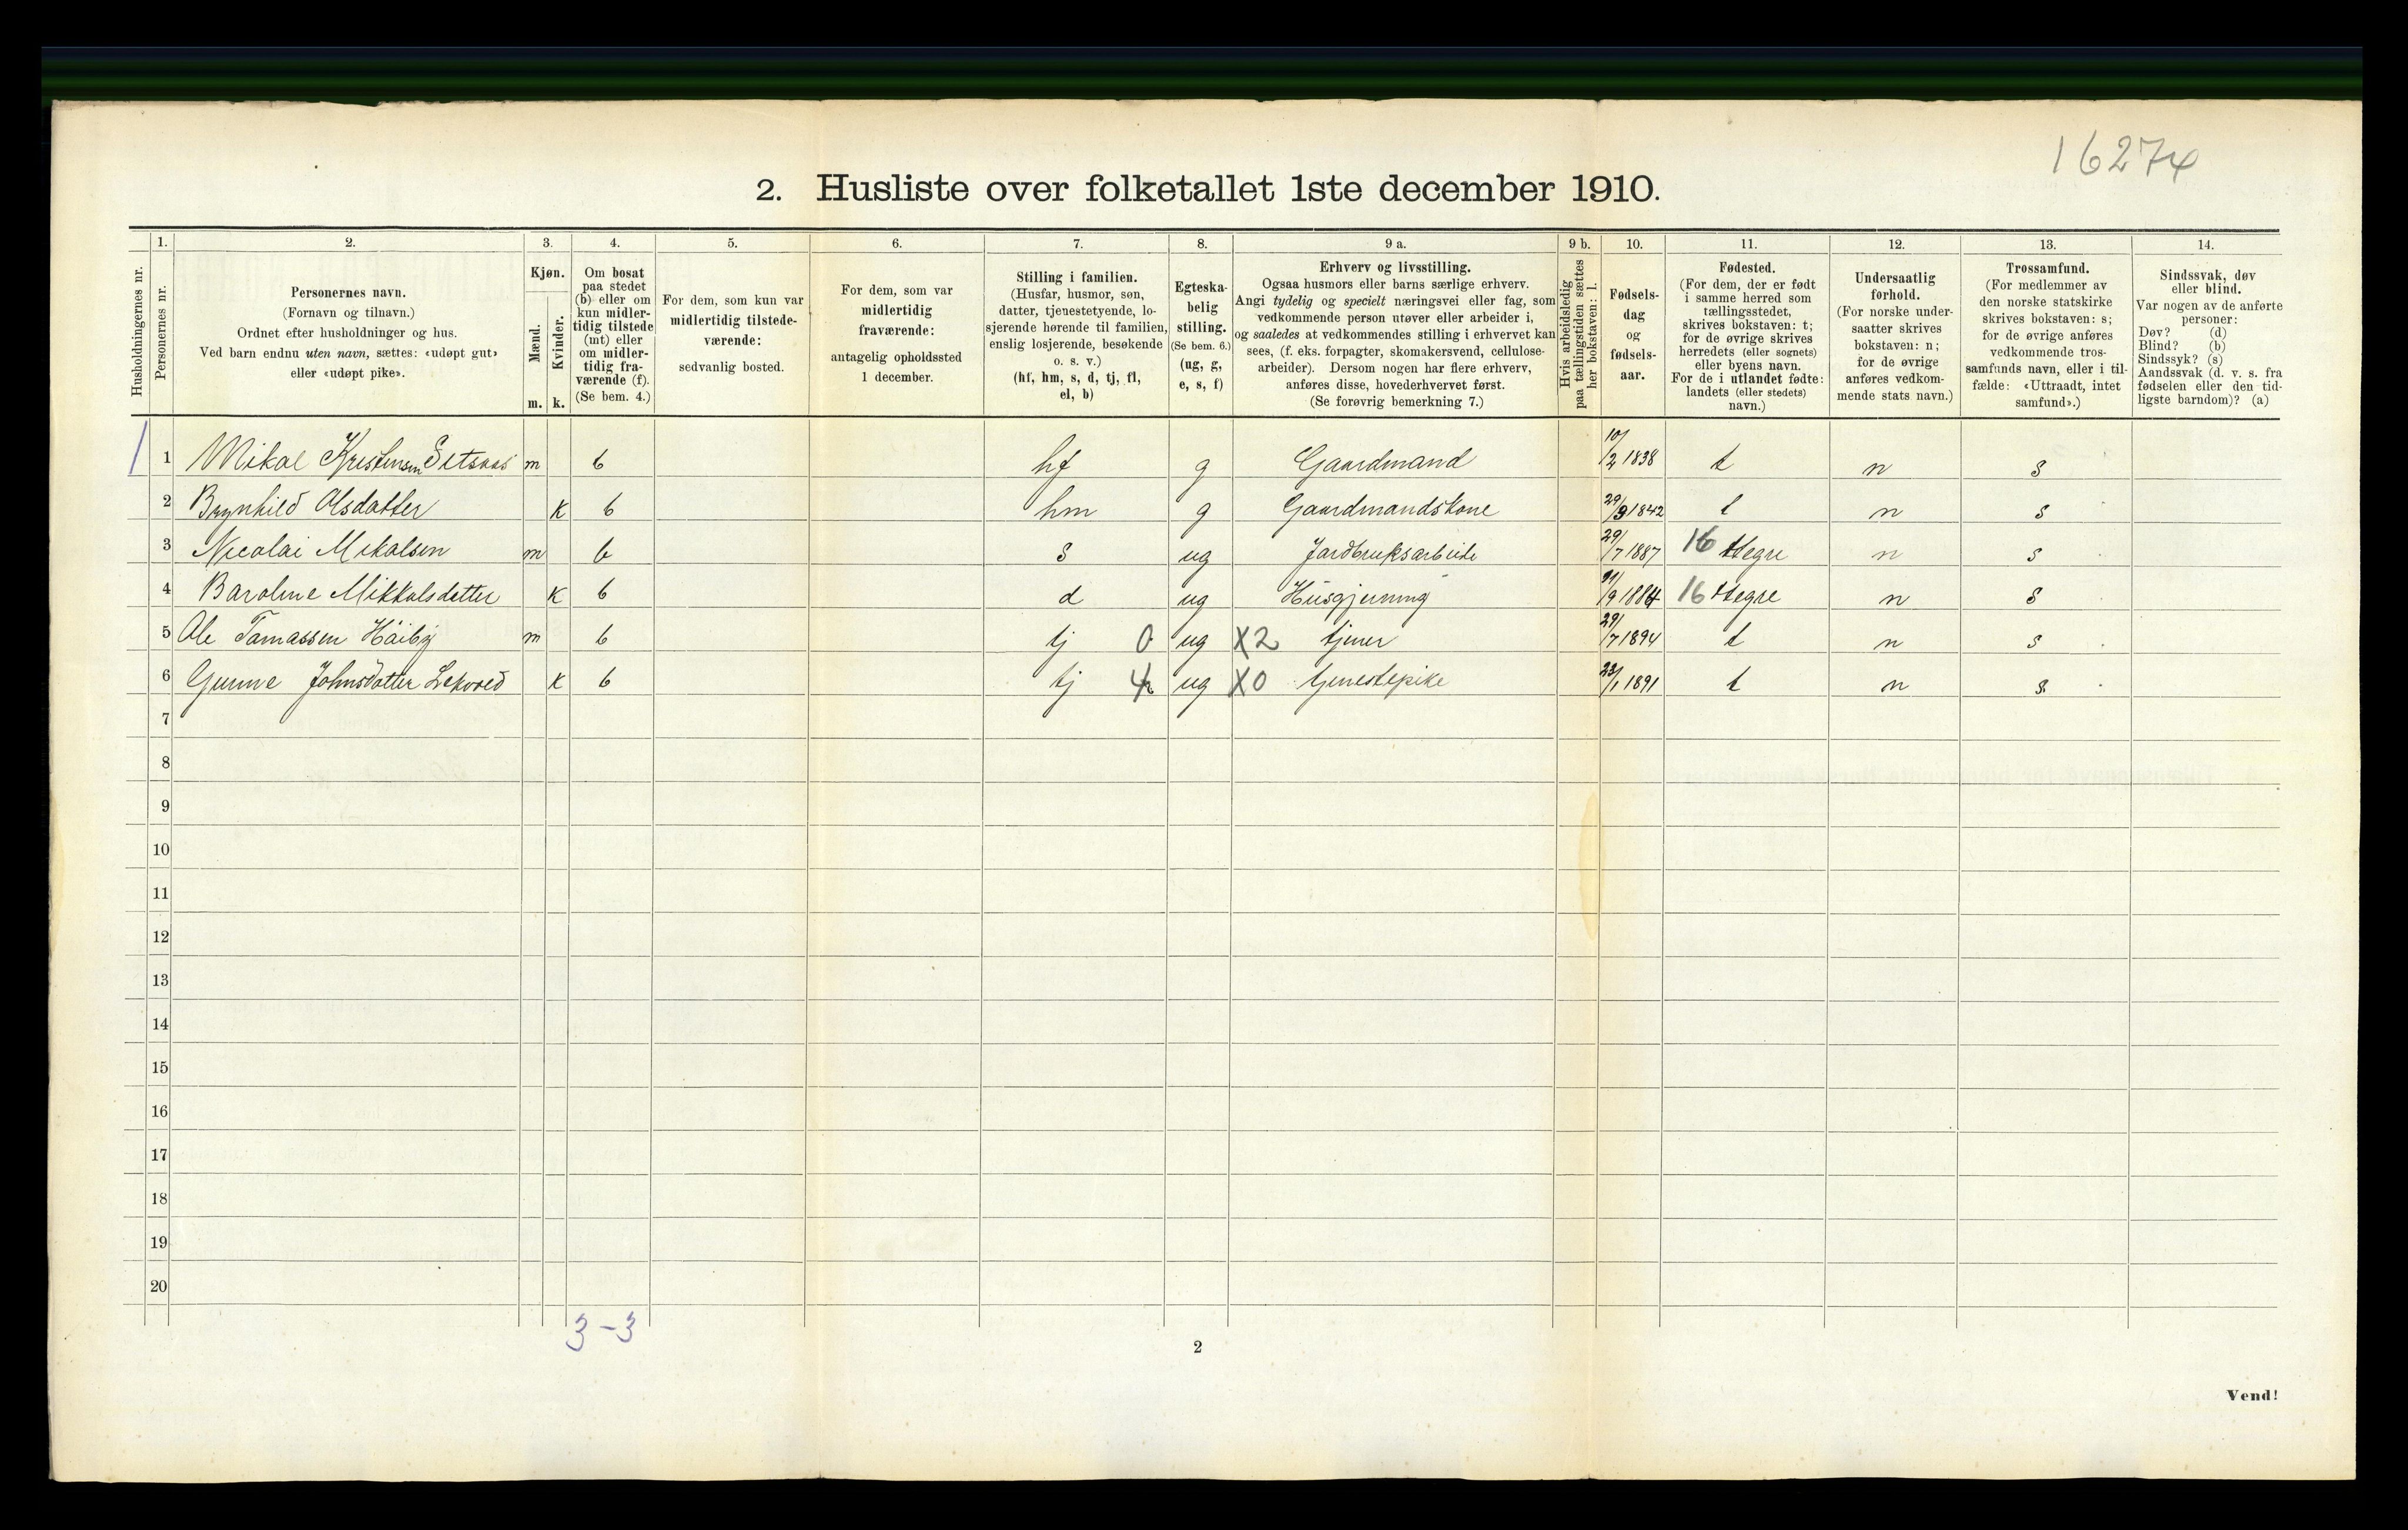 16274
2. Husliste over folketallet 1ste december 1910.
Husholdningernes nr.
1.
Personernes nr.
2.
Personernes navn.
(Fornavn og tilnavn.)
Ordnet efter husholdninger og hus.
Ved barn endnu uten navn, sættes: «udøpt gut»
eller «udøpt pike».
3.
Kjøn.
Mænd.
Kvinder.
m. k.
4.
Om bosat
paa stedet
(b) eller om
kun midler-
tidig tilstede
(mt) eller
om midler-
tidig fra-
værende (f).
(Se bem. 4.)
5.
For dem, som kun var
midlertidig tilstede-
værende:
sedvanlig bosted.
6.
For dem, som var
midlertidig
fraværende:
antagelig opholdssted
1 december.
7.
Stilling i familien.
(Husfar, husmor, søn,
datter, tjenestetyende, lo-
sjerende hørende til familien,
enslig losjerende, besøkende
o. s. v.)
(hf, hm, s, d, tj, fl,
el, b)
8.
Egteska-
belig
stilling.
(Se bem. 6.)
(ug, g,
e, s, f)
9 a.
Erhverv og livsstilling.
Ogsaa husmors eller barns særlige erhverv.
Angi tydelig og specielt næringsvei eller fag, som
vedkommende person utøver eller arbeider i,
og saaledes at vedkommendes stilling i erhvervet kan
sees, (f. eks. forpagter, skomakersvend, cellulose-
arbeider). Dersom nogen har flere erhverv,
anføres disse, hovederhvervet først.
(Se forøvrig bemerkning 7.)
9 b.
Hvis arbeidsledig
paa tællingstiden sættes
her bokstaven: l.
10.
Fødsels-
dag
og
fødsels-
aar.
11.
Fødested.
(For dem, der er født
i samme herred som
tællingsstedet,
skrives bokstaven: t;
for de øvrige skrives
herredets (eller sognets)
eller byens navn.
For de i utlandet fødte:
landets (eller stedets)
navn.)
12.
Undersaatlig
forhold.
(For norske under-
saatter skrives
bokstaven: n;
for de øvrige
anføres vedkom-
mende stats navn.)
13.
Trossamfund.
(For medlemmer av
den norske statskirke
skrives bokstaven: s;
for de øvrige anføres
vedkommende tros-
samfunds navn, eller i til-
fælde: «Uttraadt, intet
samfund».)
14.
Sindssvak, døv
eller blind.
Var nogen av de anførte
personer:
Døv? (d)
Blind? (b)
Sindssyk? (s)
Aandssvak (d. v. s. fra
fødselen eller den tid-
ligste barndom)? (a)
1 1 Mikal Kristensen m b hf g Gaardmand 10/2 1838 t n s
2 Brynhild Olsdatter k b hm g Gaardmandskone 29/9 1842 t n s
3 Nicolai Mikalsen m b s ug Jardbruksarbeide 29/7 1887 16 Hegre n s
4 Baroline Mikkalsdatter k b d ug Husgjerning /9 1884 16 Hegre n s
5 Ole Tamassen Häiby m b tj 0 ug X2 tjener 29/7 1894 t n s
6 Gunne Johnsdatter k b tj ug X0 tjenestepike 23/1 1891 t n s
7
8
9
10
11
12
13
14
15
16
17
18
19
20
3-3
2
Vend!